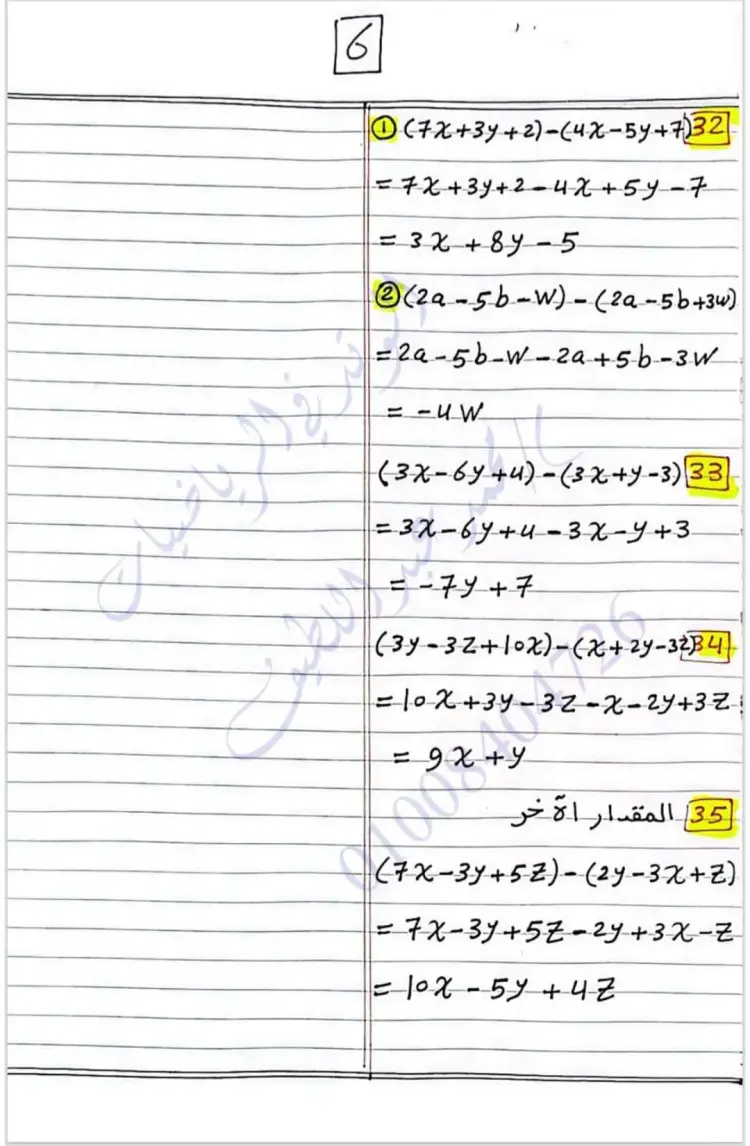 6
① (7x+3y+2)-(4x-5y+7) 32
= 7x+3y+2-4x+5y-7
= 3x+8y-5
② (2a-5b-w)-(2a-5b+3w)
= 2a-5b-w-2a+5b-3w
= -4w
(3x-6y+4)-(3x+y-3) 33
= 3x-6y+4-3x-y+3
= -7y+7
(3y-3z+10x)-(x+2y-3z) 34
= 10x+3y-3z-x-2y+3z
= 9x+y
35 المقدار الآخر
(7x-3y+5z)-(2y-3x+z)
= 7x-3y+5z-2y+3x-z
= 10x-5y+4z
في الرياضيات
01008404726